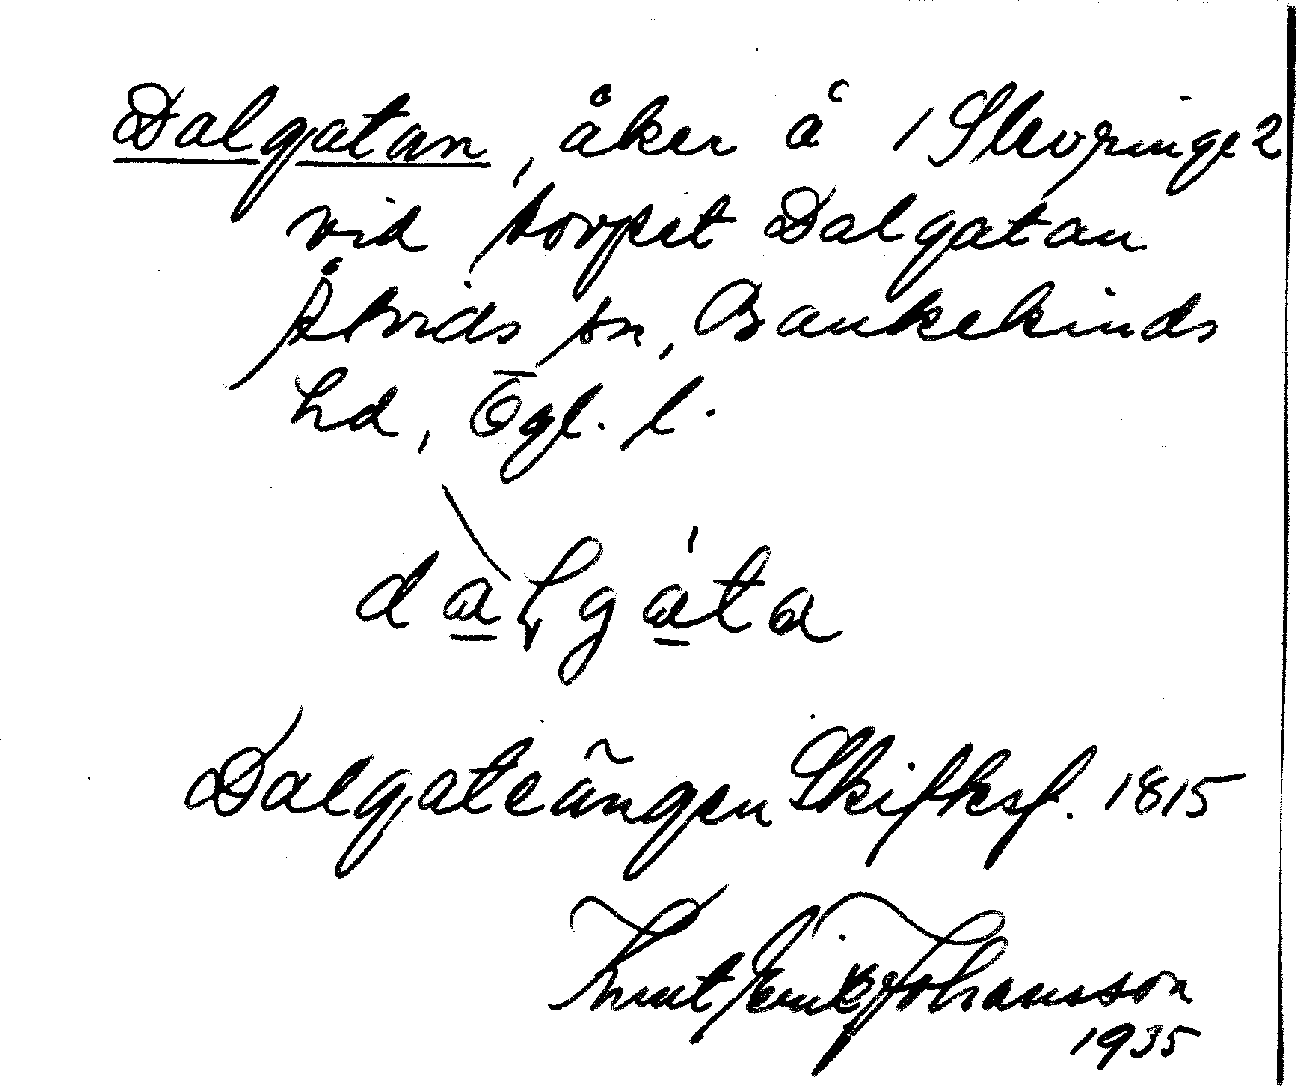 Dalgatan, åker å 1 Slevringe 2
vid torpet Dalgatan
Åtvids sn, Bankekinds
hd, Ögl. l.
dalgata
Dalgateängen Skifksf. 1815
Knut Erik Johansson
1935